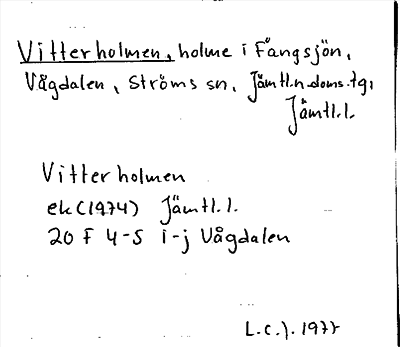 Vitterholmen, holme i Fångsjön,
Vågdalen, Ströms sn, Jämtl. n. doms. tg,
Jämtl. l.
Vitterholmen
ek (1974) Jämtl. l.
20 F 4-5 i-j Vågdalen
L.C.J. 1977